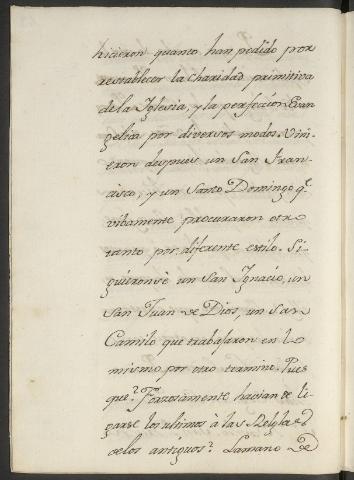 hicieron quanto han pedido por
restablecer la charidad primitiva
de la Iglesia, y la perfeccion Evan-
gelica por diversos modos. Vini-
eron despues un San Fran-
cisco, y un Santo Domingo q.e
vibamente procuraron otr
tanto por diferente estilo. Si-
guieronse un San Ignacio, un
San Juan de Dios, un San
Camilo que trabajaron en l
mismo por otro termino. Pues
que? Forzosamente havian de li-
garse los ultimos à las Reglas
de los antiguos? La mano De